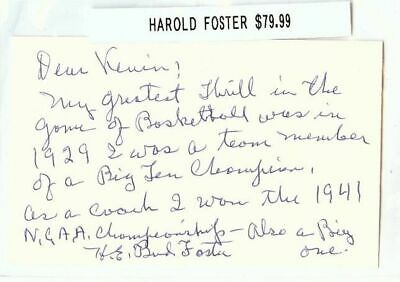 HAROLD FOSTER $79.99
Dear Kevin,
My greatest thrill in the
game of Basketball was in
1929 I was a team member
of a Big Ten Champion,
as a coach I won the 1941
N.C.A.A. Championship - Also a Big
H.E. Bud Foster one.